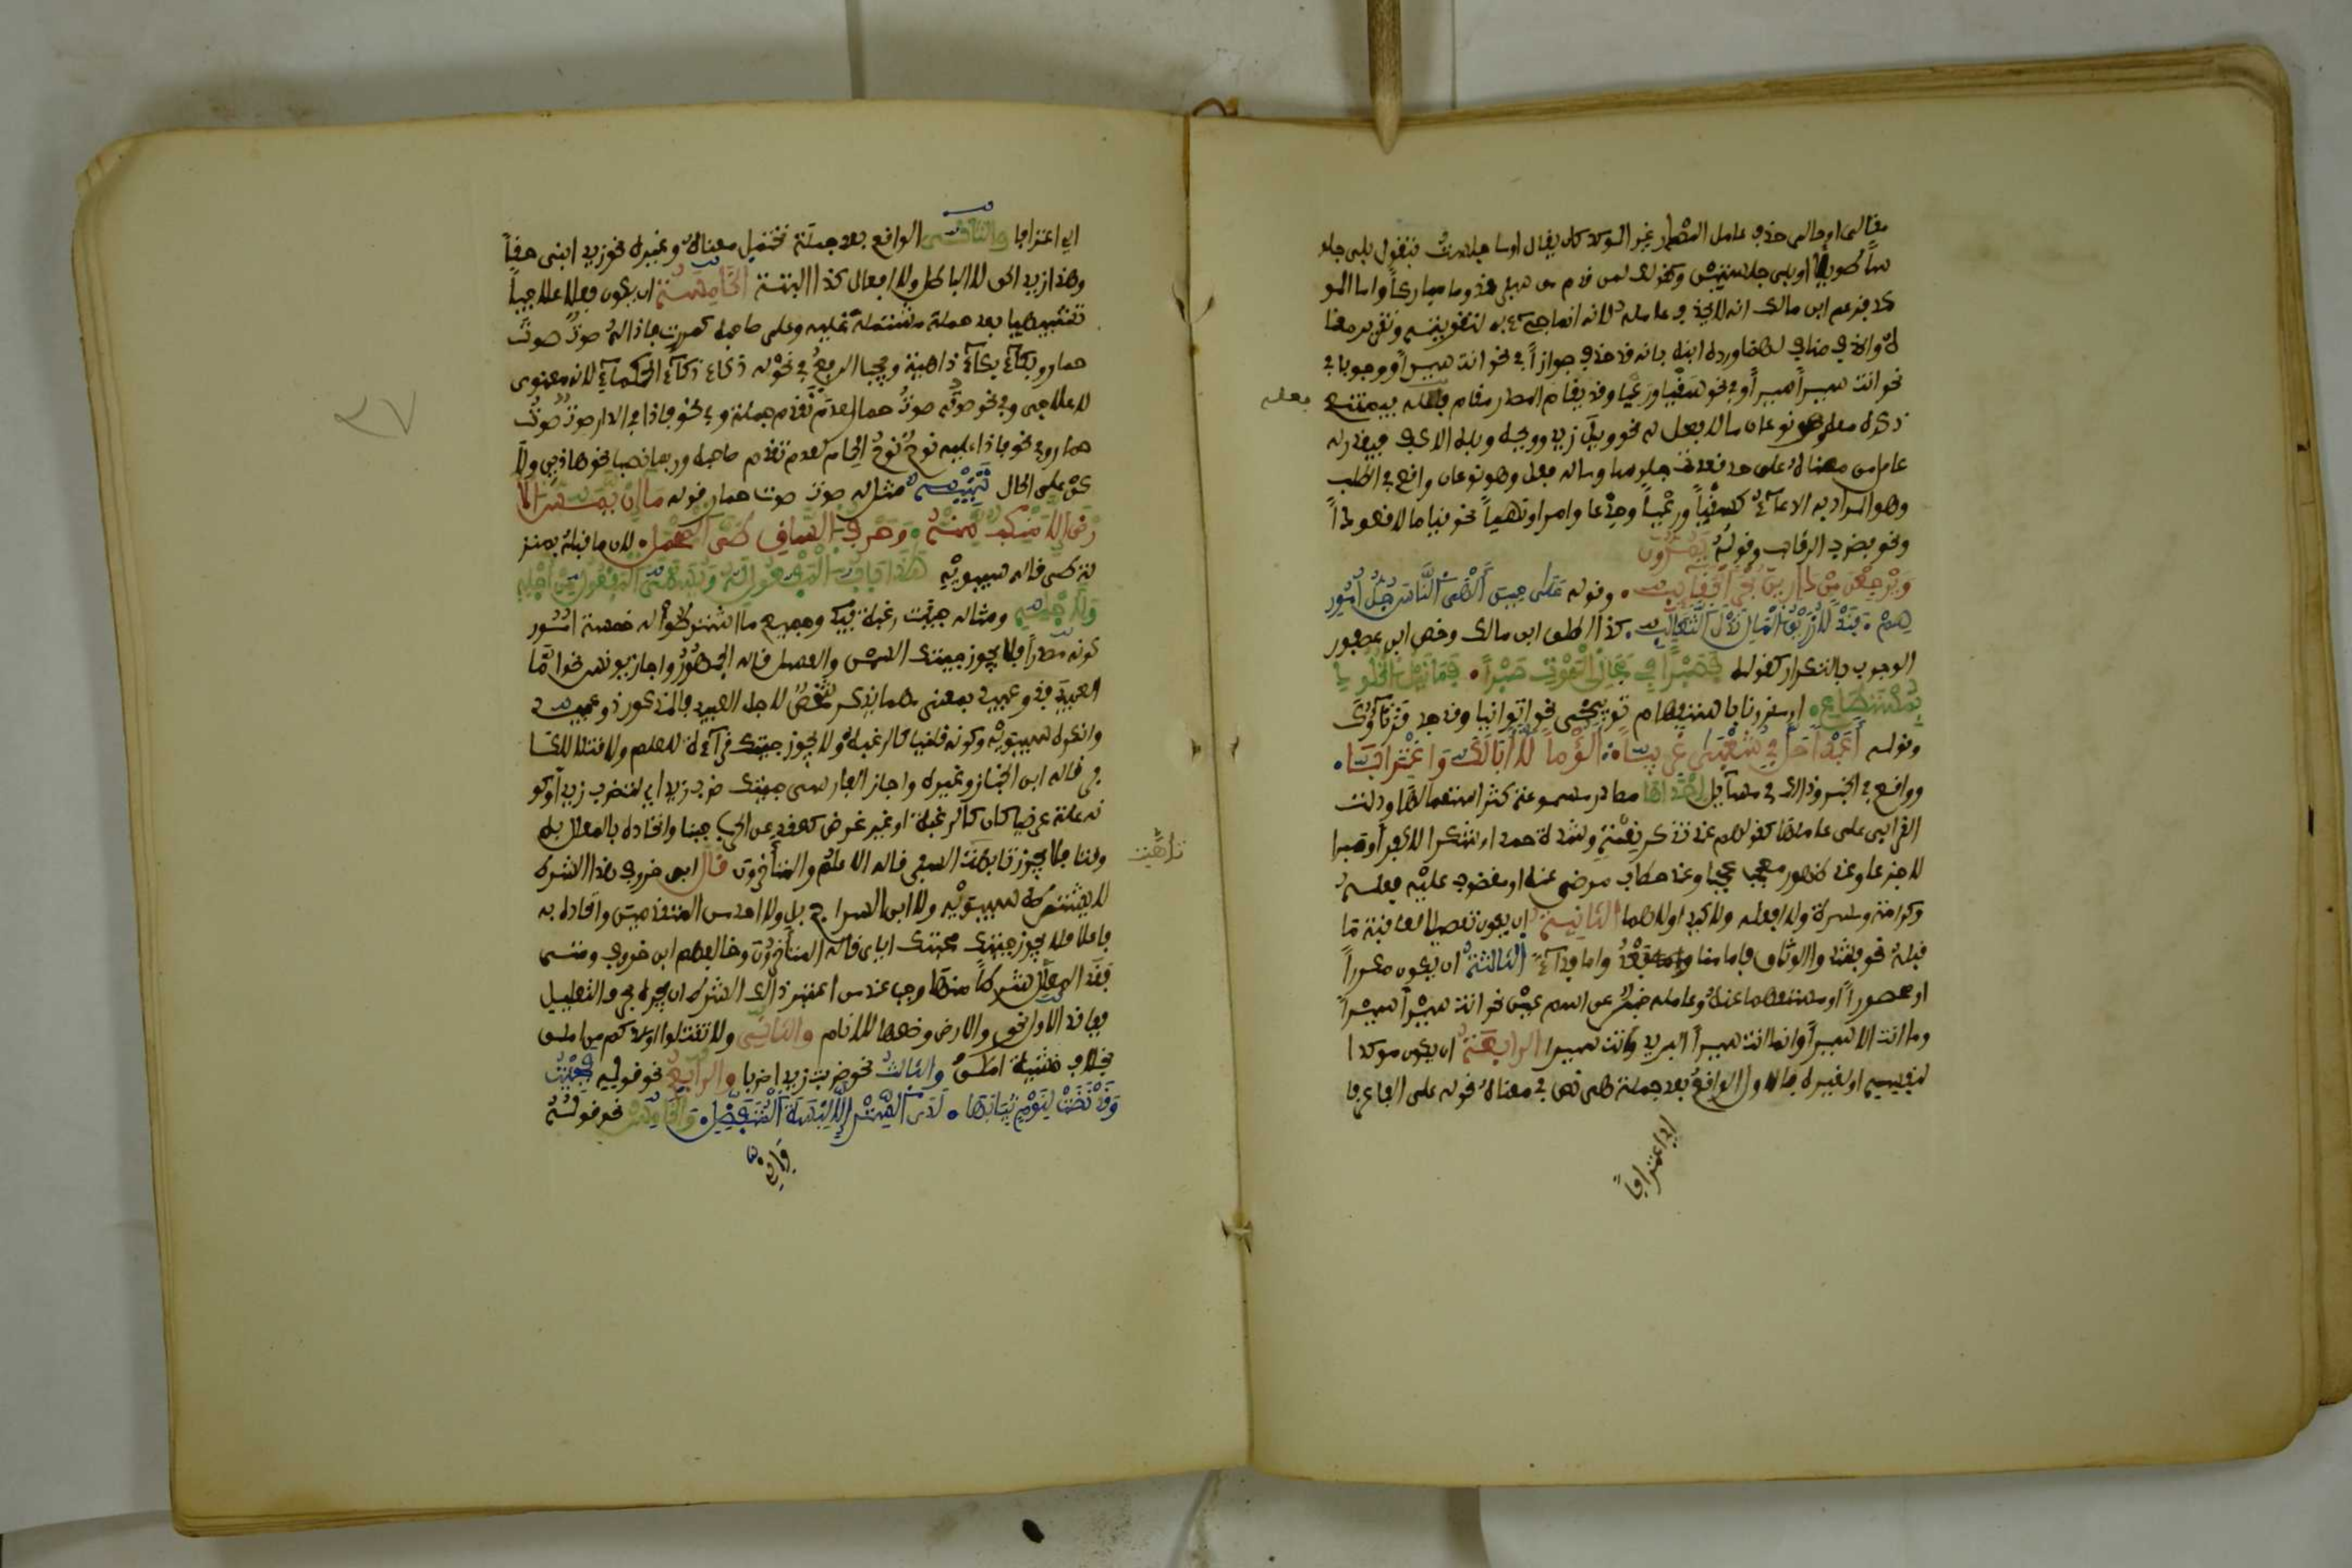 مقالي او حالي حذف عامل المصدر غير المؤكد كان يقال اوما جلست فتقول بلى جلو
سا طويلا او بلى جلستين وكقولك لمن قدم من سفر قدوما مباركا واما المو
كد فزعم ابن مالك انه لا يحذف عامله لانه انما جيء به لتقويته وتقرير معنا
ه والحذف مناف لهما ورده ابنه بانه قد حذف جوازا في نحو انت سيرا ووجوبا في
نحو انت سيرا سيرا وفي نحو سقيا ورعيا وقد يقام المصدر مقام فعله فيمتنع
فعله
ذكره معه وهو نوعان ما لا فعل له نحو ويل زيد وويحه وبله الاكف فيقدر له
عامل من معناه على حد قعدت جلوسا وما له فعل وهو نوعان واقع في الطلب
وهو المراد به الدعاء كسقيا ورعيا وجدعا وامرا ونهيا نحو قياما لا قعودا
ونحو فضرب الرقاب وقوله يمرون
ويرجعن من دارين بجر الحقايب وقوله على حين الهى الناس جل امور
هم فندلا زريق المال ندل الثعالب كذا اطلق ابن مالك وخص ابن عصفور
الوجوب بالتكرار كقوله فصبرا في مجال الموت صبرا فما نيل الخلود
بمستطاع او مقرونا باستفهام توبيخي نحو اتوانيا وقد جد قرناوك
وقوله اعبدا حل في شعبى غريبا الؤما لا ابا لك واغترابا
وواقع في الخبر وذلك في مسائل احداها مصادر مسموعة كثر استعمالها ودلت
القرائن على عاملها كقولهم عند تذكر نعمة وشدة حمدا وشكرا لا كفرا وصبرا
لا جزعا وعند ظهور معجب عجبا وعند خطاب مرضي عنه او مغضوب عليه افعله
وكرامة ومسرة ولا افعله ولا كيدا ولا هما الثانية ان يكون تفصيلا لعاقبة ما
قبله نحو فشدوا الوثاق فاما منا بعد واما فداء الثالثة ان يكون مكررا
او محصورا او مستفهما عنه وعامله خبر عن اسم عين نحو انت سيرا سيرا
وما انت الا سيرا وانما انت سيرا البريد واانت سيرا الرابعة ان يكون موكدا
لنفسه او لغيره فالاول الواقع بعد جملة هي نص في معناه نحو له علي الف عرفا
اي اعترافا
اي اعترافا والثاني الواقع بعد جملة تحتمل معناه وغيره نحو زيد ابني حقا
وهذا زيد الحق لا الباطل ولا افعل كذا البتة الخامسة ان يكون فعلا علاجيا
تشبيهيا بعد جملة مشتملة عليه وعلى صاحبه كمررت فاذا له صوت صوت
حمار وبكاء بكاء ذات داهية ويجب الرفع في نحو له ذكاء ذكاء الحكماء لانه معنوي
لا علاجي وفي نحو صوته صوت حمار لعدم تقدم جملة وفي نحو فاذا في الدار صوت صوت
حمار وفي نحو فاذا عليه نوح نوح الحمام لعدم تقدم صاحبه وربما نصب نحو هاذين
على الحال تنبيه مثل له صوت صوت حمار قوله ما ان يمس الا
رض الا منكب منه وحرف الساق طي المحمل لان ما قبله بمنز
لة له طي قاله سيبويه هذا باب المفعول له ويسمى المفعول من اجله
ولاجله ومثاله جئت رغبة فيك وجميع ما اشترطوا له خمسة امور
كونه مصدرا فلا يجوز جئتك السمن والعسل قاله الجمهور واجاز يونس نحو اما
العبيد فذو عبيد بمعنى مهما يذكر شخص لاجل العبيد فالمذكور ذو عبيد
وانكره سيبويه وكونه قلبيا كالرغبة ولا يجوز جئتك قراءة للعلم ولا قتلا للكا
فر قاله ابن الخباز وغيره واجاز الفارسي جئتك ضرب زيد اي لتضرب زيدا وكو
نه علة عرضا كان كالرغبة او غير عرض كقعد عن الحرب جبنا واتحاده بالمعلل به
وقتا فلا يجوز تاهبت السفر قاله الاعلم والمتاخرون
تاهبت
قال ابن خروف هذا الشرط
لم يشترطه سيبويه ولا ابن السراج بل ولا احد من المتقدمين واتحاده به
فاعلا فلا يجوز جئتك محبتك اياي قاله المتاخرون وخالفهم ابن خروف ومتى
فقد المعلل شرطا منها وجب عند من اعتبر ذلك الشرط ان يجره بحرف التعليل
ففاقد الاول نحو والارض وضعها للانام والثاني ولا تقتلوا اولادكم من املاق
بخلاف خشية املاق والثالث نحو ضربت زيدا ضربا والرابع نحو قوله فجئت
وقد نضت لنوم ثيابها لدى الستر الا لبسة المتفضل والخامس نحو قوله
واني